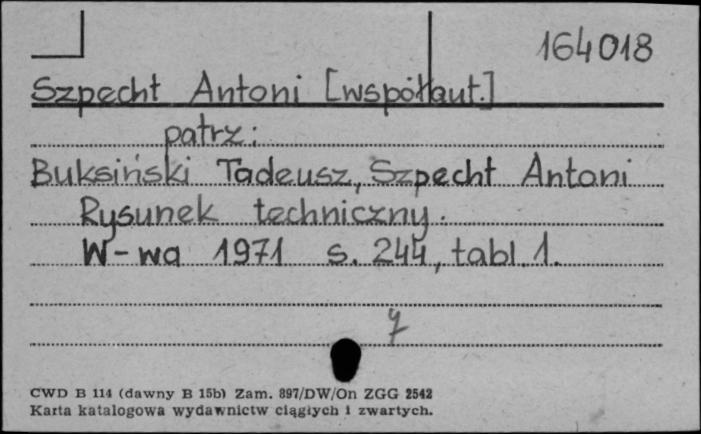 164018
Szpecht Antoni [współaut.]
patrz:
Buksiński Tadeusz, Szpecht Antoni
Rysunek techniczny.
W-wa 1971 s. 244, tabl. 1.
CWD B 114 (dawny B 15b) Zam. 897/DW/On ZGG 2542
Karta katalogowa wydawnictw ciągłych i zwartych.